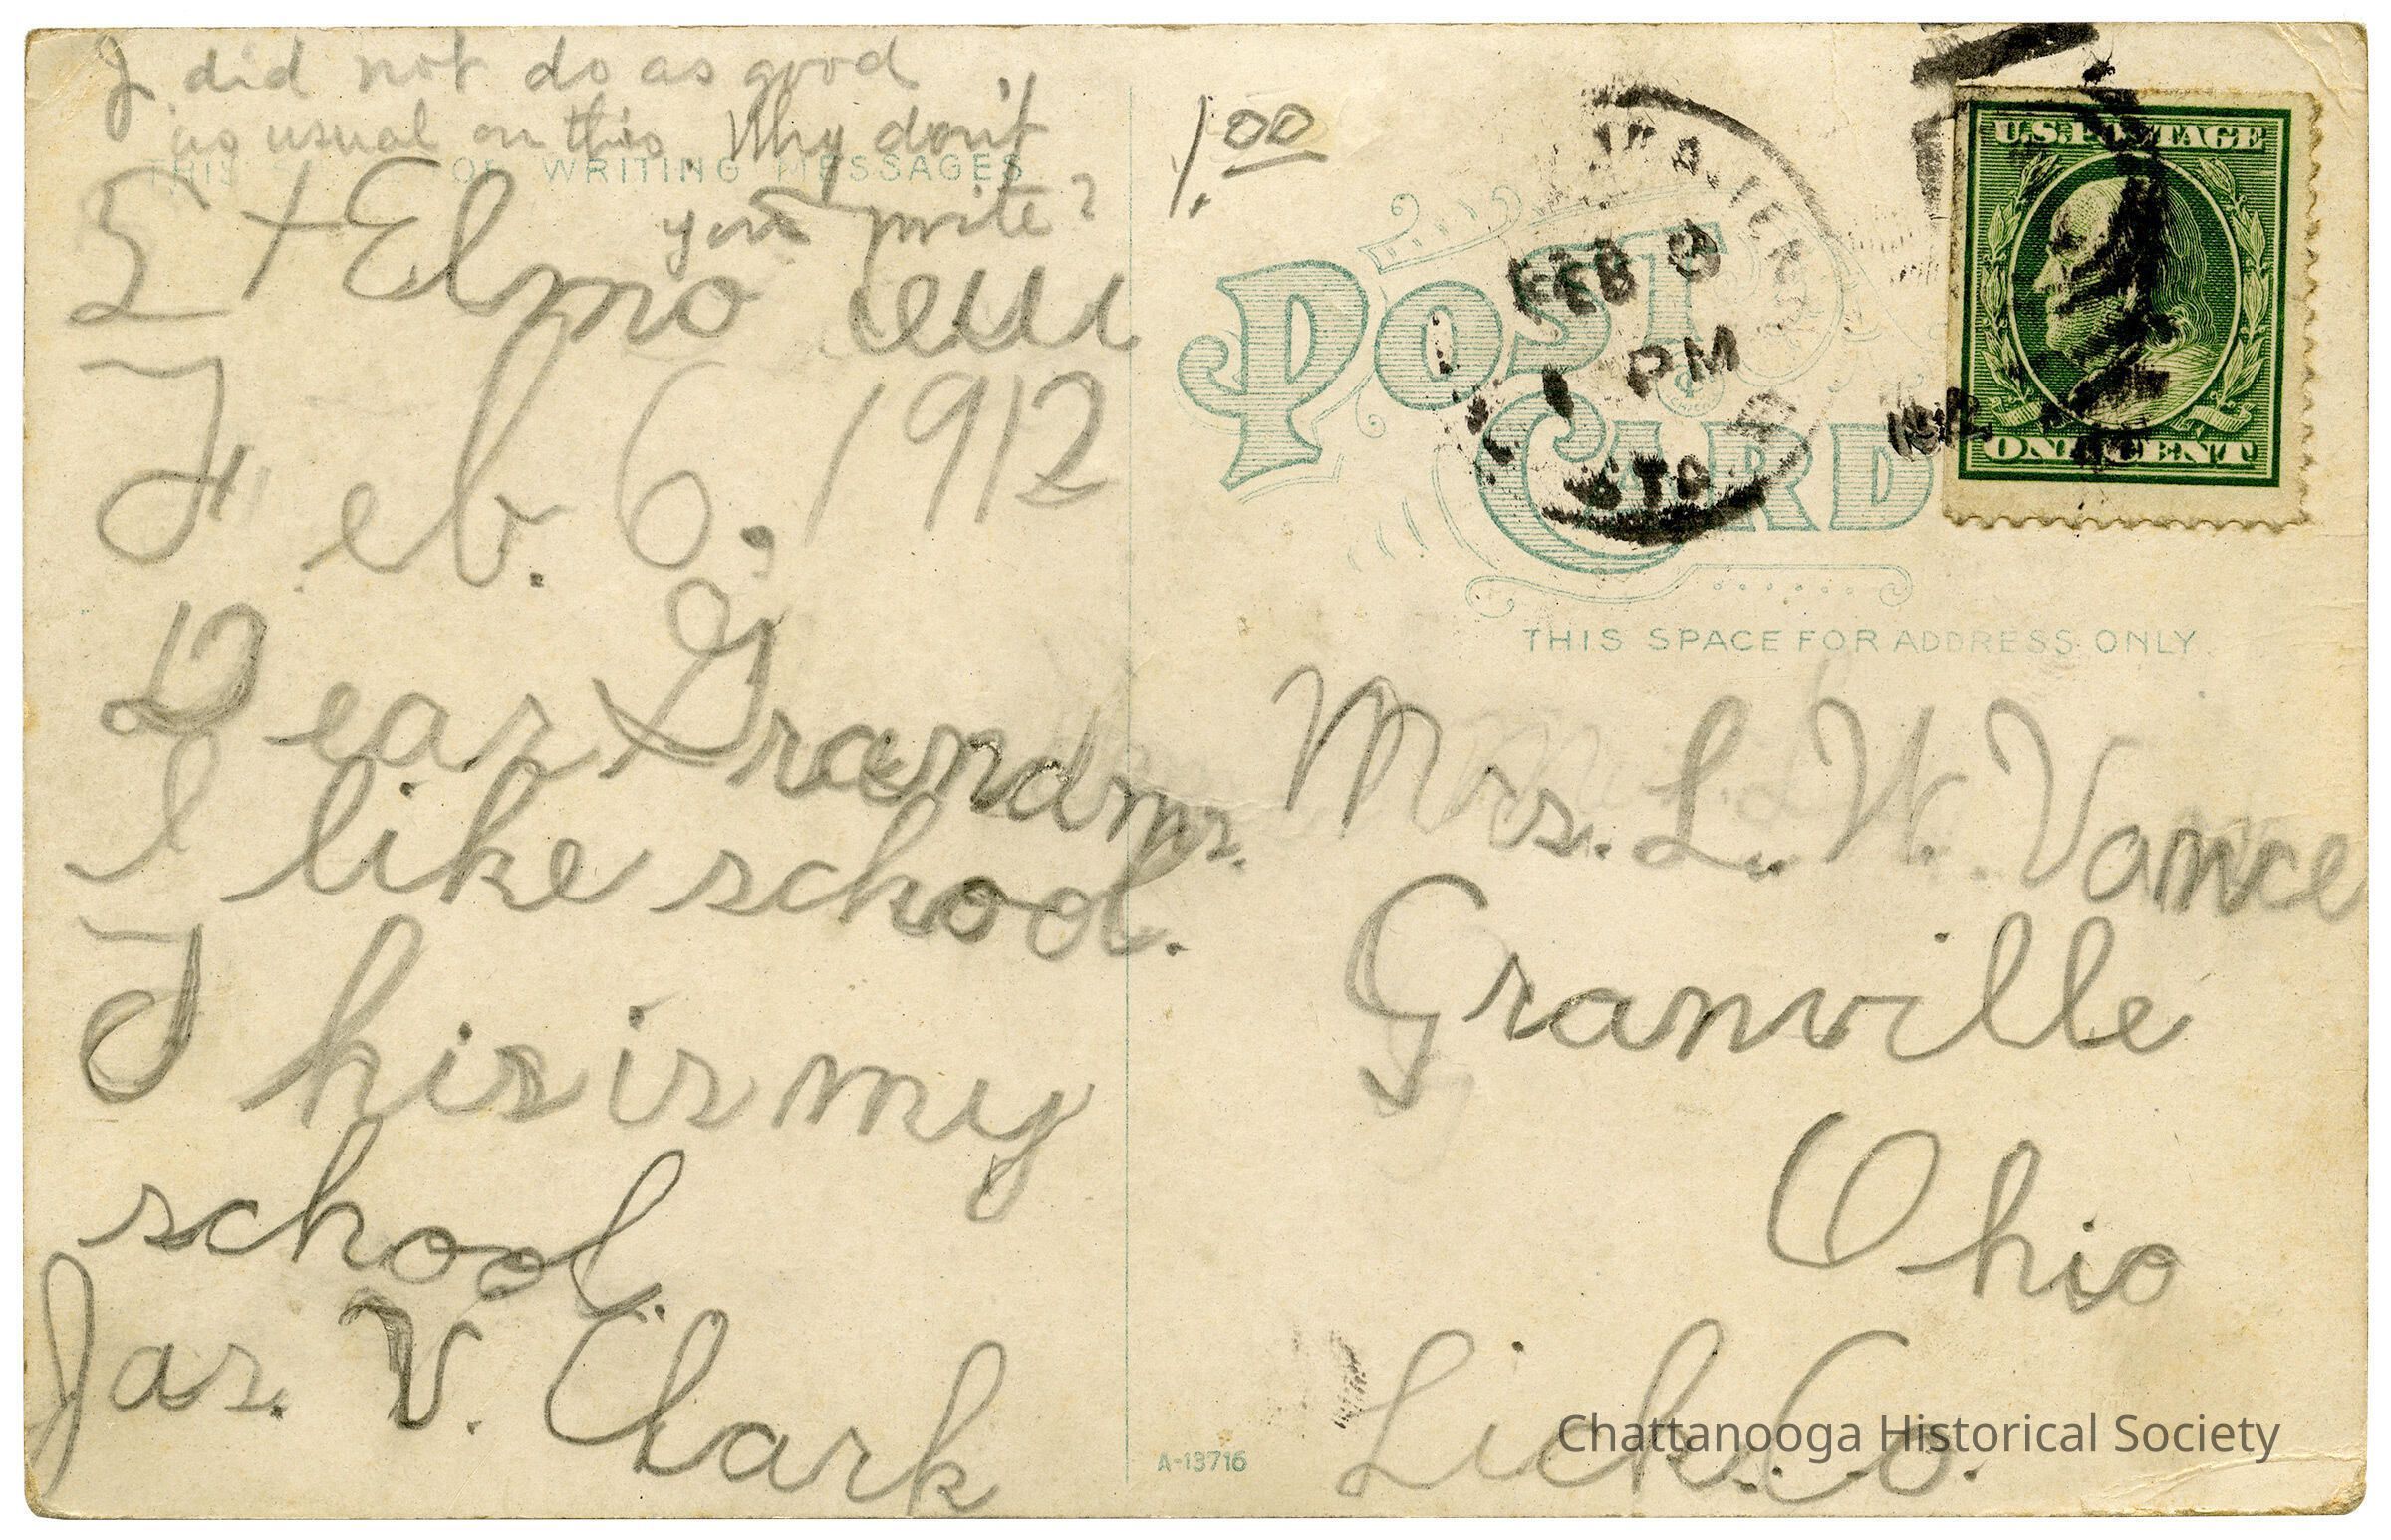 I did not do as good
as usual on this. Why don't
you write?
THIS OF WRITING MESSAGES
St Elmo
Feb. 6, 1912
Dear Grandma.
I like school.
This is my
school.
Jas. V. Clark
1.00
POST CARD
FEB 8
1 PM
1912
STA
U.S. POSTAGE
ONE CENT
THIS SPACE FOR ADDRESS ONLY.
Mrs. L. W. Vance
Granville
Ohio
Lick. Co.
A-13716
Chattanooga Historical Society